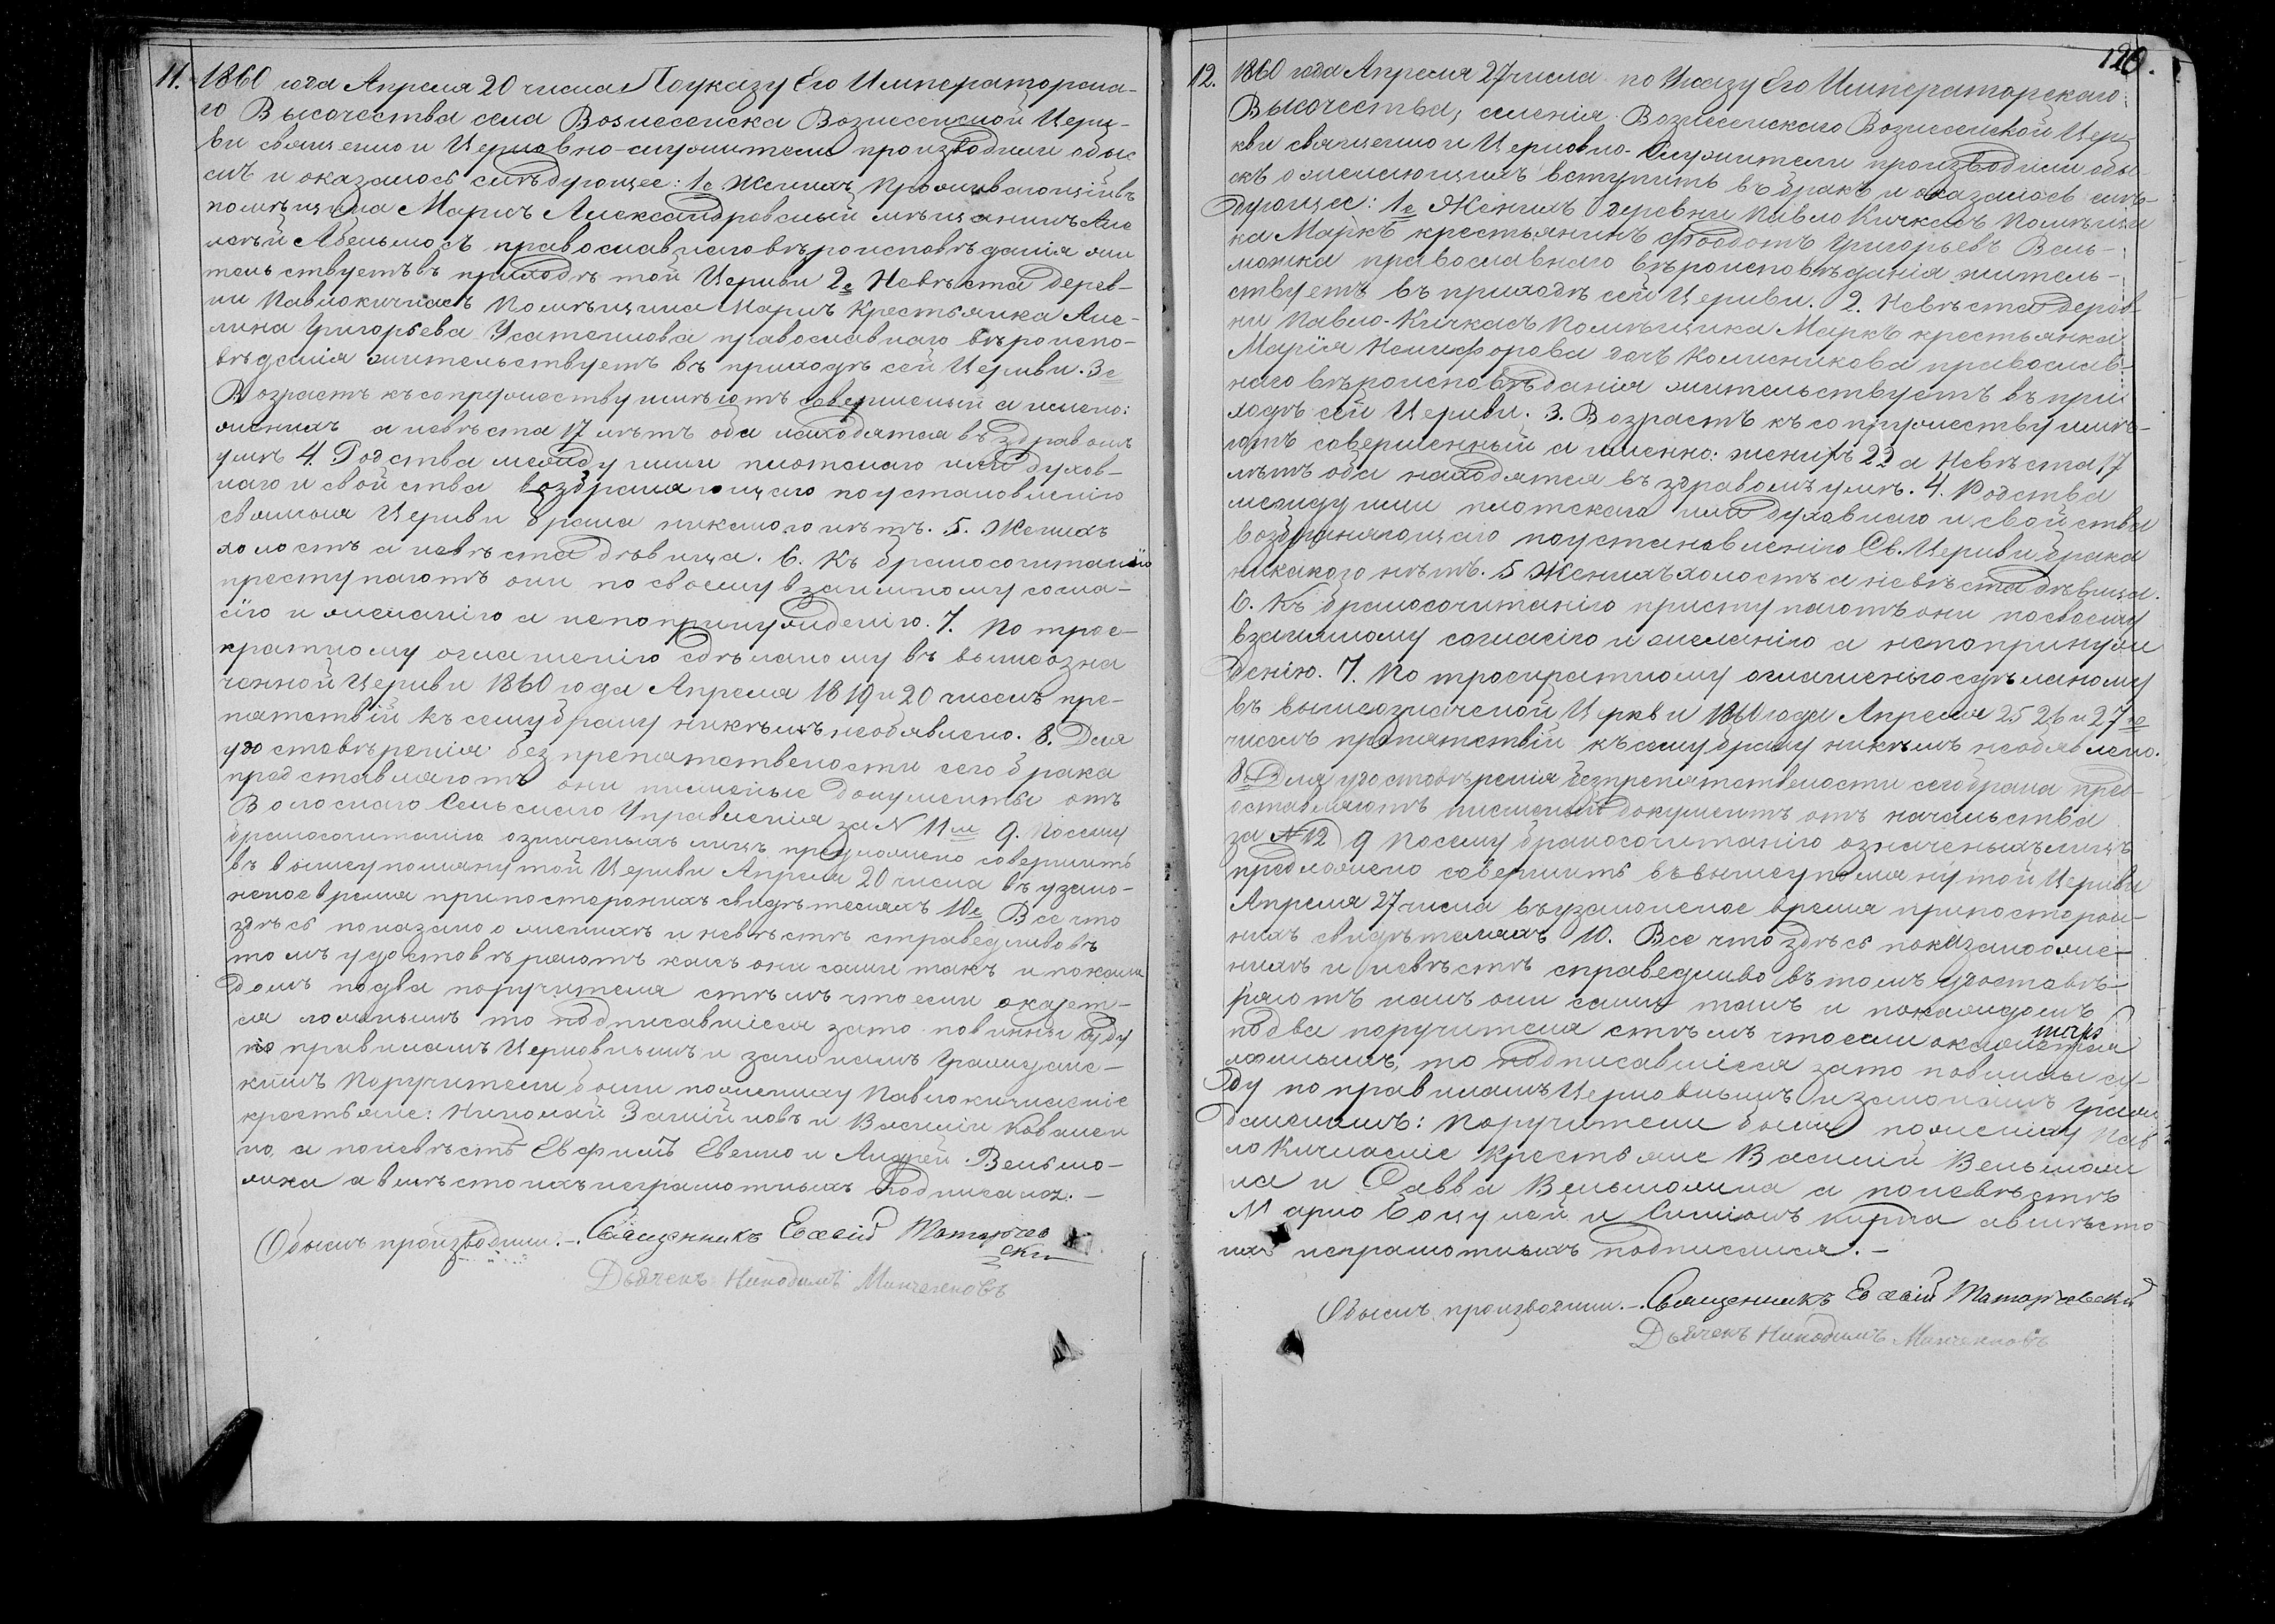 11. 1860 года Апреля 20 числа По указу Его Императорска-
го Высочества села Вознесенска Вознесенской Церк-
ви священно и Церковно-служители производили обыс
къ и оказалось слѣдующее: 1е Женихъ Проживающій въ
помѣщика Маркъ Александровскый мѣщанинъ Але
православнаго вѣроисповѣданія жи
тельствуетъ въ приходѣ той Церкви 2е Невѣста дерев-
ни Павлокичкасъ Помѣщика Маркъ Крестьянка Аку-
лина Григорьева Усатенкова православнаго вѣроиспо-
вѣданія жительствуетъ въ приходѣ сей Церкви. 3е
Возрастъ къ сопружеству имѣютъ совершеный а имено:
женихъ а невѣста 17 лѣтъ оба находятся въ здравомъ
умѣ 4. Родства между ними плотскаго или духов-
наго и свойства возбраняющаго по установленію
святыя Церкви брака никакого нѣтъ. 5. Женихъ
холостъ а невѣста дѣвица. 6. Къ бракосочитанію
преступаютъ они по своему взаимному согла-
сію и желанію а непопринужденію. 7. По трое-
кратному оглашенію сдѣланому въ вышеозна
ченной Церкви 1860 года Апреля 18 19 и 20 числъ пре-
пятствій къ сему браку никѣмъ необявлено. 8. Для
удостовѣренія безпрепятствености сего брака
представляютъ они письменые документы отъ
Волоснаго Сельскаго Управленія за N 11м 9. Посему
бракосочитанію означеныхъ лицъ предложено совершить
въ вышеупомянутой Церкви Апреля 20 числа въ узако-
неное время припосторонихъ свидѣтеляхъ 10е Все что
здѣсь показано о женихѣ и невѣстѣ справедливо въ
томъ удостовѣряютъ какъ они сами такъ и покаж
домъ подва поручителя стѣмъ что если окажет-
ся ложнымъ то подписавшіеся зато повинны суду
по правиламъ Церковнымъ и законамъ Гражданс-
кимъ Поручители были пожениху Павлокичкаскіе
крестьяне: Николай и Василій Ковален
ко, а поневѣстѣ Евфимъ Евенко и Андрей Вельмо-
жка авмѣсто ихъ неграмотныхъ подписался. —
Обыскъ производили: — Священникъ Евсѣвій Матарѣев
скій
Дьячекъ Никодимъ
120.
12. 1860 года Апреля 27 числа по Указу Его Императорскаго
Высочества, селенія Вознесенскаго Вознесенской Цер-
кви священно и Церковно-Служители производили обы-
скъ ожелающихъ вступить въ бракъ и оказалось слѣ-
дующее: 1е Женихъ деревни Павло Кичкасъ Помѣщи
ка Маркъ крестьянинъ Феодотъ Григорьевъ Вель-
можка православнаго вѣроисповѣданія житель-
ствуетъ въ приходѣ сей Церкви. 2. Невѣста дерев-
ни Павло-Кичкасъ Помѣщика Маркъ крестьянка
Марія Никифорова дочь Колисникова православ-
наго вѣроисповѣданія жительствуетъ въ при
ходѣ сей Церкви. 3. Возрастъ къ сопружеству имѣ-
ютъ совершенный а именно: женихъ 22 а Невѣста 17
лѣтъ оба находятся въ здравомъ умѣ. 4. Родства
между ними плотскаго или духовнаго и свойства
возбраняющаго по установленію Св. Церкви брака
никакого нѣтъ. 5 Женихъ холостъ а невѣста дѣвица.
6. Къ бракосочитанію приступаютъ они по своему
взаимному согласію и желанію а непопринуж
денію. 7. По троекратному оглашенію сдѣланому
въ вышеозначеной Церкви 1860 года Апреля 25 26 и 27го
числъ препятствій къ сему браку никѣмъ необявлено.
8. Для удостовѣренія безпрепятствености сего брака пред-
оставляютъ письменый документъ отъ начальства
за N 12 9 Посему бракосочитанію означеныхъ лицъ
предложено совершить въ вышеупомянутой Церкви
Апреля 27 числа въ узаконеное время припосторон-
нихъ свидѣтеляхъ 10. Все что здѣсь показано оже-
нихѣ и невѣстѣ справедливо въ томъ удостовѣ-
ряютъ какъ они сами такъ и покаждомъ
подва поручителя стѣмъ что если окажется
ложнымъ, то подписавшіеся зато повинны су-
ду по правиламъ Церковнымъ и законамъ Граж
данскимъ: Поручители были пожениху Пав
ло Кичкаскіе Крестьяне Василій Вельмож
ка и Савва Вельможка а поневѣстѣ
Марко и Симіонъ Кирпа авмѣсто
ихъ неграмотныхъ подписался. —
Обыскъ производили. — Священникъ Евсѣвій Матарѣевскій
Дьячекъ Никодимъ